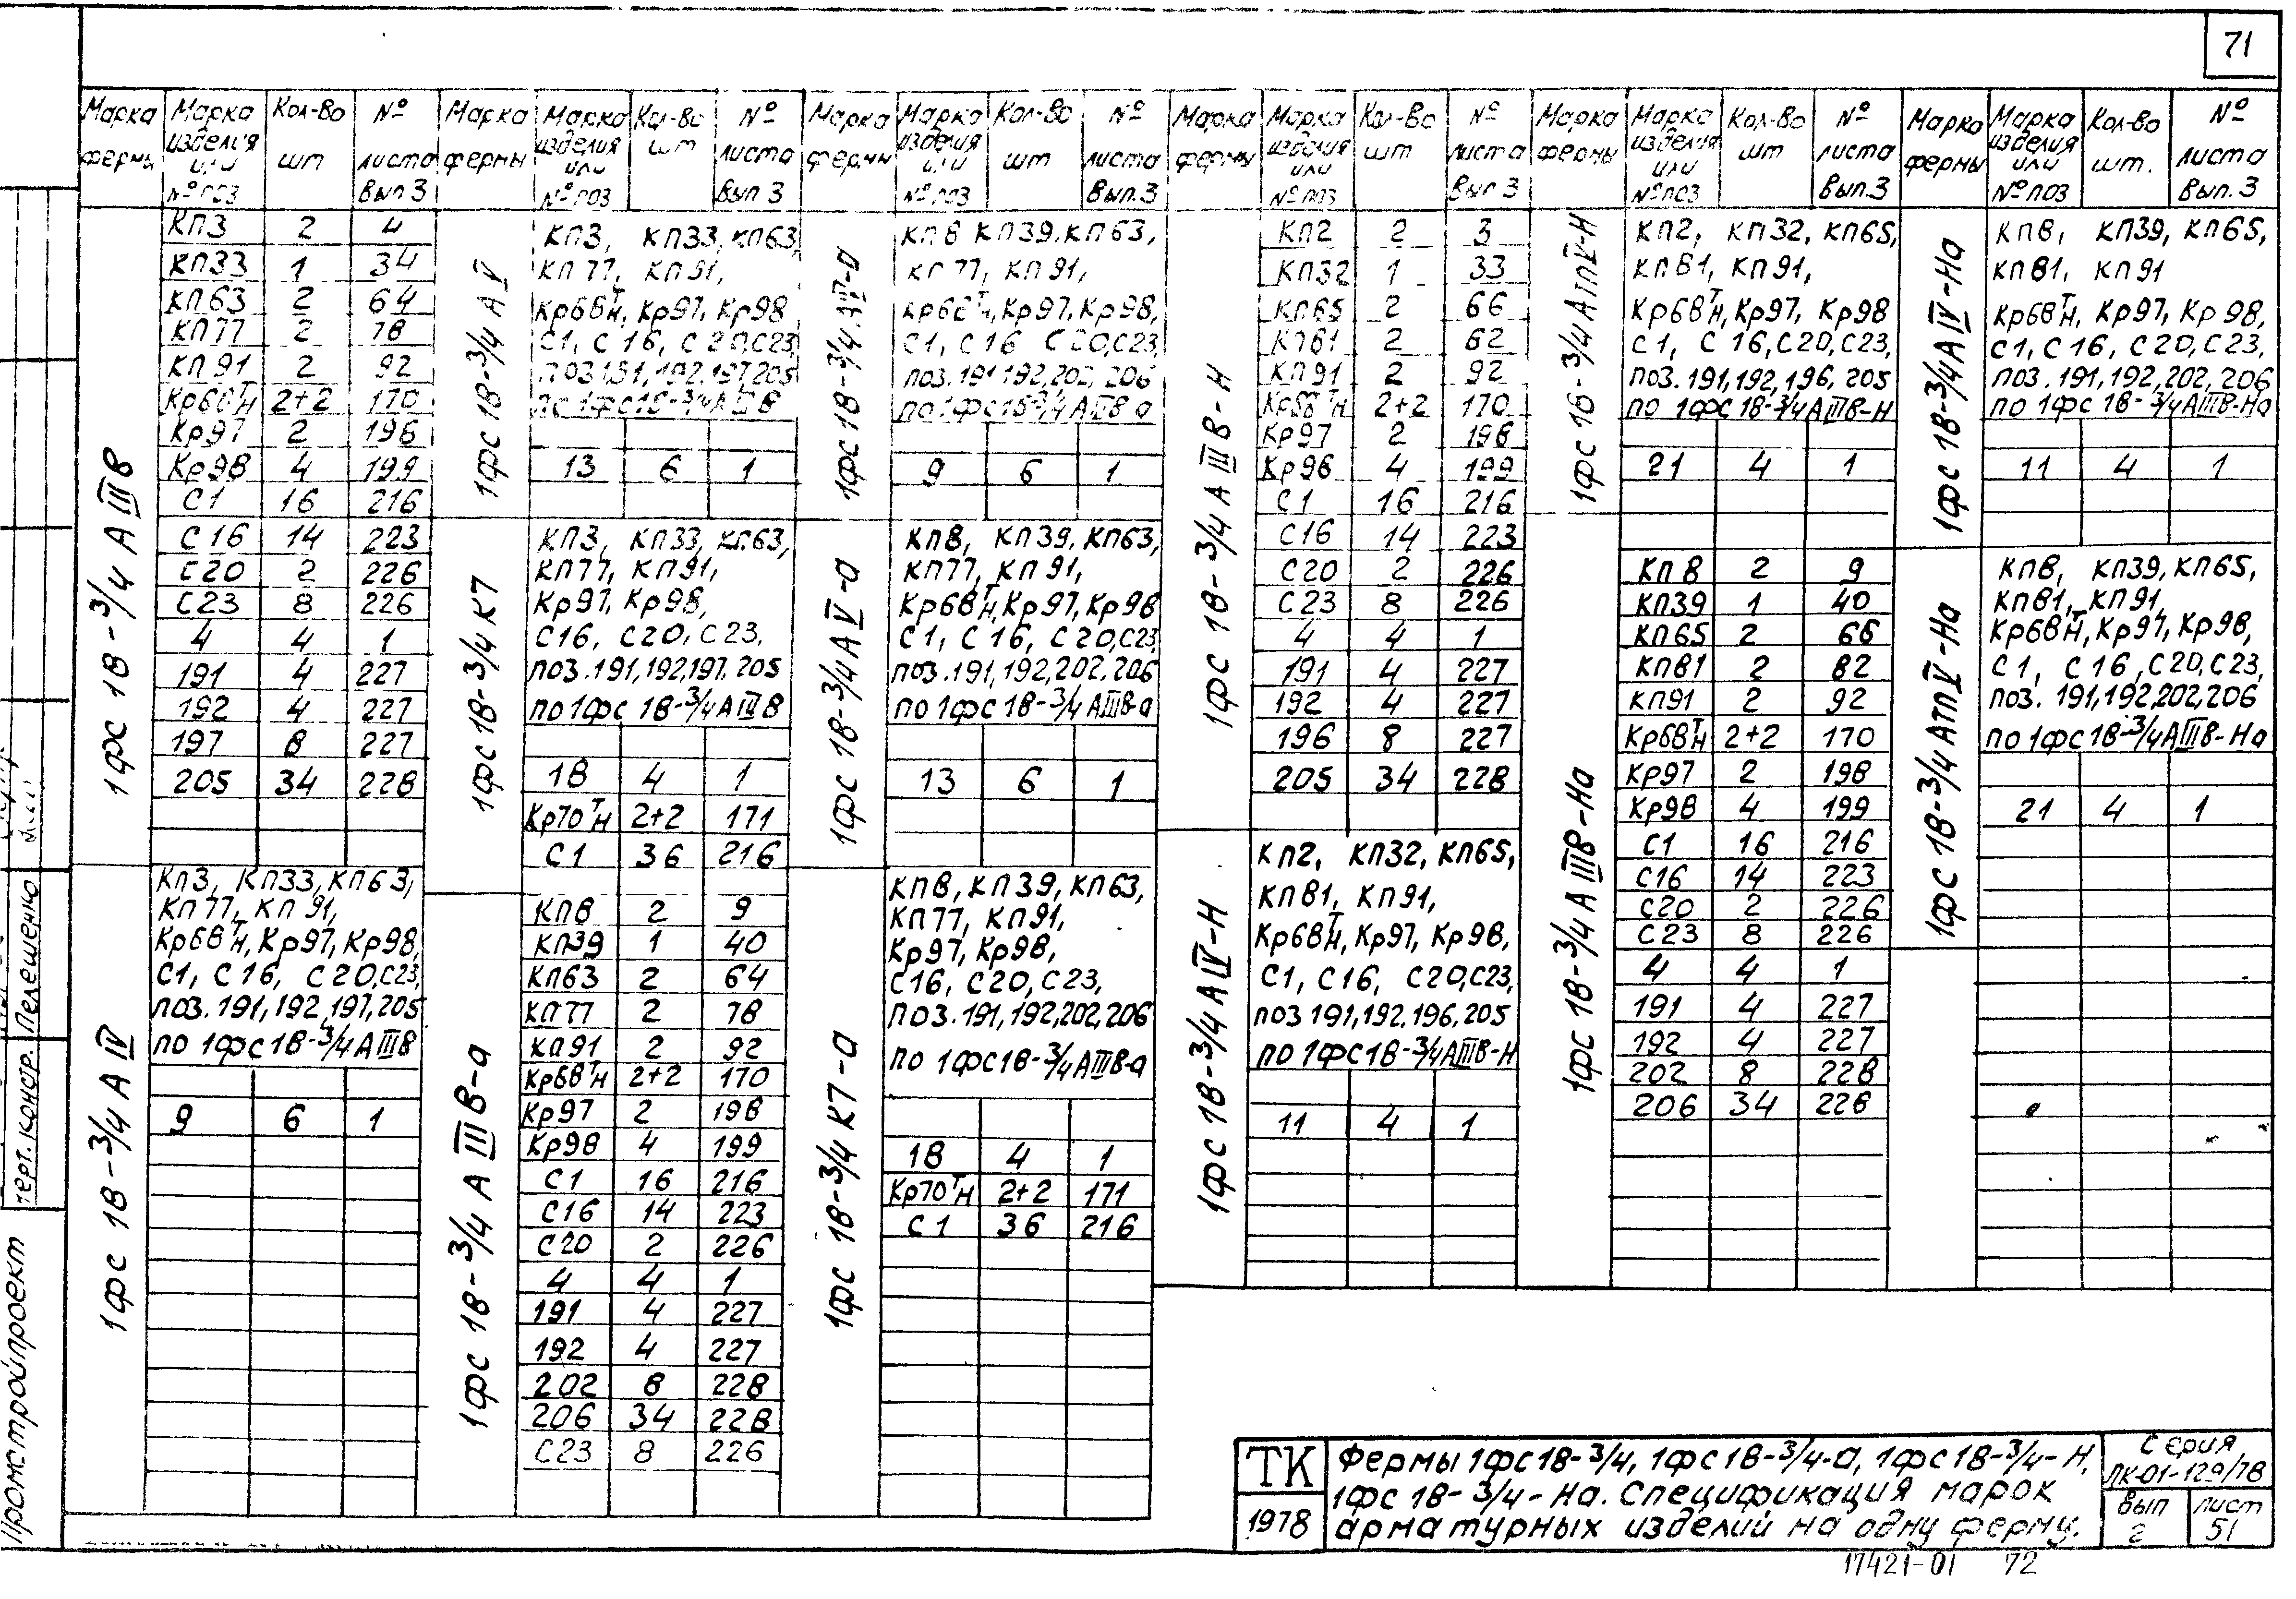 71
Марка фермы | Марка изделия или № поз | Кол-во шт | № листа Вып 3
1ФС 18-3/4 А IIIв
КП3 2 4
КП33 1 34
КП63 2 64
КП77 2 78
КП91 2 92
Кр68ТН 2+2 170
Кр97 2 198
Кр98 4 199
С1 16 216
С16 14 223
С20 2 226
С23 8 226
4 4 1
191 4 227
192 4 227
197 8 227
205 34 228
1ФС 18-3/4 А IV
КП3, КП33, КП63,
КП77, КП91,
Кр68ТН, Кр97, Кр98,
С1, С16, С20, С23,
поз. 191, 192, 197, 205
по 1ФС18-3/4 АIIIв
9 6 1
Марка фермы | Марка изделия или № поз | Кол-во шт | № листа Вып 3
1ФС 18-3/4 А V
КП3, КП33, КП63,
КП77, КП91,
Кр68ТН, Кр97, Кр98
С1, С16, С20, С23,
поз 191, 192, 197, 205
по 1ФС18-3/4 АIIIв
13 6 1
1ФС 18-3/4 К7
КП3, КП33, КП63,
КП77, КП91,
Кр97, Кр98,
С16, С20, С23,
поз. 191, 192, 197, 205
по 1ФС 18-3/4 АIIIв
18 4 1
Кр70ТН 2+2 171
С1 36 216
1ФС 18-3/4 А IIIв-а
КП8 2 9
КП39 1 40
КП63 2 64
КП77 2 78
КП91 2 92
Кр68ТН 2+2 170
Кр97 2 198
Кр98 4 199
С1 16 216
С16 14 223
С20 2 226
4 4 1
191 4 227
192 4 227
202 8 228
206 34 228
С23 8 226
Марка фермы | Марка изделия или № поз | Кол-во шт | № листа Вып. 3
1ФС 18-3/4 АIV-а
КП8 КП39, КП63,
КП77, КП91,
Кр68ТН, Кр97, Кр98,
С1, С16 С20, С23,
поз. 191 192, 202, 206
по 1ФС18-3/4 АIIIв-а
9 6 1
1ФС 18-3/4 А V-а
КП8, КП39, КП63,
КП77, КП91,
Кр68ТН, Кр97, Кр98
С1, С16, С20, С23,
поз. 191, 192, 202, 206
по 1ФС 18-3/4 АIIIв-а
13 6 1
1ФС 18-3/4 К7-а
КП8, КП39, КП63,
КП77, КП91,
Кр97, Кр98,
С16, С20, С23,
поз. 191, 192, 202, 206
по 1ФС18-3/4 АIIIв-а
18 4 1
Кр70ТН 2+2 171
С1 36 216
Марка фермы | Марка изделия или № поз | Кол-во шт | № листа Вып 3
1ФС 18-3/4 А IIIв-Н
КП2 2 3
КП32 1 33
КП65 2 66
КП81 2 82
КП91 2 92
Кр68ТН 2+2 170
Кр97 2 198
Кр98 4 199
С1 16 216
С16 14 223
С20 2 226
С23 8 226
4 4 1
191 4 227
192 4 227
196 8 227
205 34 228
1ФС 18-3/4 А IV-Н
КП2, КП32, КП65,
КП81, КП91,
Кр68ТН, Кр97, Кр98,
С1, С16, С20, С23,
поз 191, 192, 196, 205
по 1ФС18-3/4 АIIIв-Н
11 4 1
Марка фермы | Марка изделия или № поз | Кол-во шт | № листа Вып. 3
1ФС 18-3/4 АтпV-Н
КП2, КП32, КП65,
КП81, КП91,
Кр68ТН, Кр97, Кр98
С1, С16, С20, С23,
поз. 191, 192, 196, 205
по 1ФС 18-3/4 АIIIв-Н
21 4 1
1ФС 18-3/4 А IIIв-На
КП8 2 9
КП39 1 40
КП65 2 66
КП81 2 82
КП91 2 92
Кр68ТН 2+2 170
Кр97 2 198
Кр98 4 199
С1 16 216
С16 14 223
С20 2 226
С23 8 226
4 4 1
191 4 227
192 4 227
202 8 228
206 34 228
Марка фермы | Марка изделия или № поз | Кол-во шт. | № листа Вып. 3
1ФС 18-3/4 А IV-На
КП8, КП39, КП65,
КП81, КП91
Кр68ТН, Кр97, Кр98,
С1, С16, С20, С23,
поз. 191, 192, 202, 206
по 1ФС 18-3/4 АIIIв-На
11 4 1
1ФС 18-3/4 АтпV-На
КП8, КП39, КП65,
КП81, КП91,
Кр68ТН, Кр97, Кр98,
С1, С16, С20, С23,
поз. 191, 192, 202, 206
по 1ФС 18-3/4 АIIIв-На
21 4 1
ТК
1978
Фермы 1ФС18-3/4, 1ФС18-3/4-а, 1ФС18-3/4-Н,
1ФС 18-3/4-На. Спецификация марок
арматурных изделий на одну ферму.
Серия
ПК-01-129/78
Вып 2
лист 51
17421-01 72
Промстройпроект
Черт. констр. Пелешенко